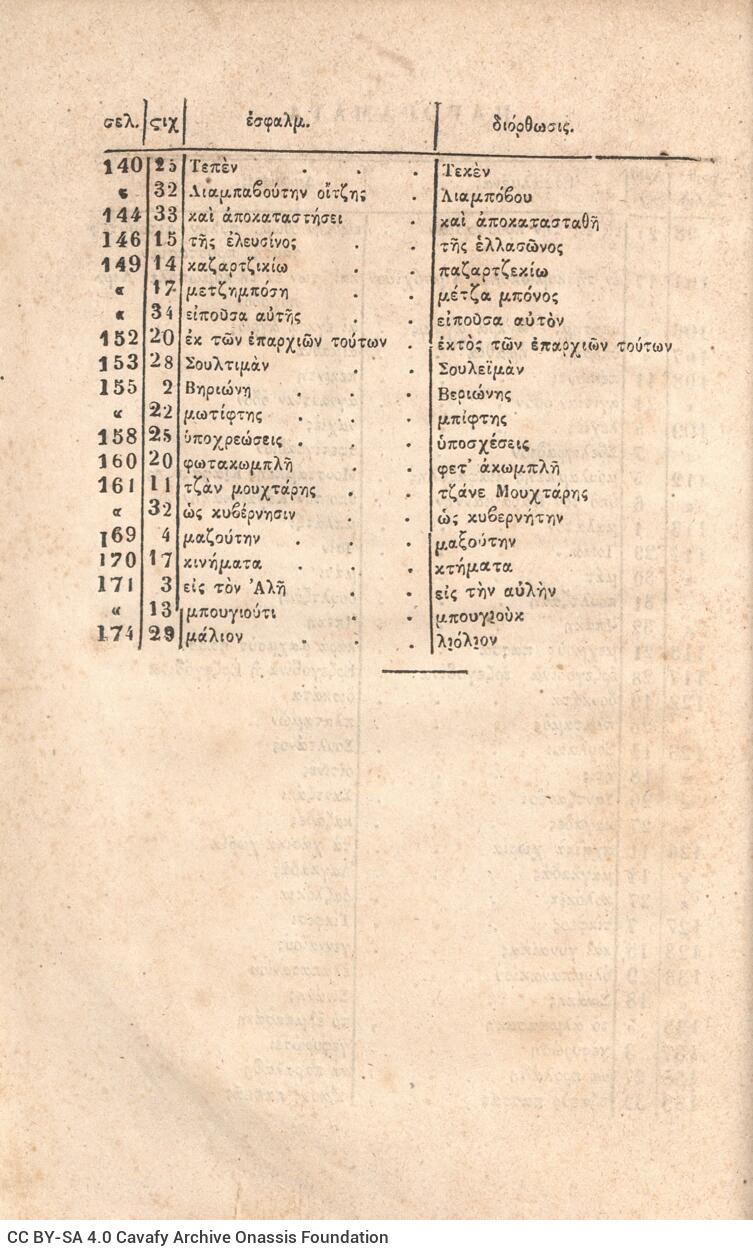 σελ. ςιχ ἐσφαλμ. διόρθωσις.
140 25 Τεπὲν . . . Τεκὲν
« 32 Λιαμπαβούτην οἴτζης . Λιαμπόβου
144 33 καὶ ἀποκαταστήσει . καὶ ἀποκατασταθῆ
146 15 τῆς ἐλευσίνος . . τῆς ἑλλασῶνος
149 14 καζαρτζικίω . . παζαρτζεκίω
« 17 μετζημπόση . . μέτζα μπόνος
« 34 εἰποῦσα αὐτῆς . . εἰποῦσα αὐτὸν
152 20 ἐκ τῶν ἐπαρχιῶν τούτων . ἐκτὸς τῶν ἐπαρχιῶν τούτων
153 28 Σουλτιμὰν . . Σουλεϊμὰν
155 2 Βηριώνη . . . Βεριώνης
« 22 μωτίφτης . . . μπίφτης
158 25 ὑποχρεώσεις . . . ὑποσχέσεις
160 20 φωτακωμπλῆ . . φετ' ἀκωμπλῆ
161 11 τζὰν μουχτάρης . . τζάνε Μουχτάρης
« 32 ὡς κυβέρνησιν . . ὡς κυβερνήτην
169 4 μαζούτην . . . μαξούτην
170 17 κινήματα . . . κτήματα
171 3 εἰς τὸν Ἀλῆ . . εἰς τὴν αὐλὴν
« 13 μπουγιούτι . . μπουγιοὺκ
174 29 μάλιον . . . λιόλιον
CC BY-SA 4.0 Cavafy Archive Onassis Foundation